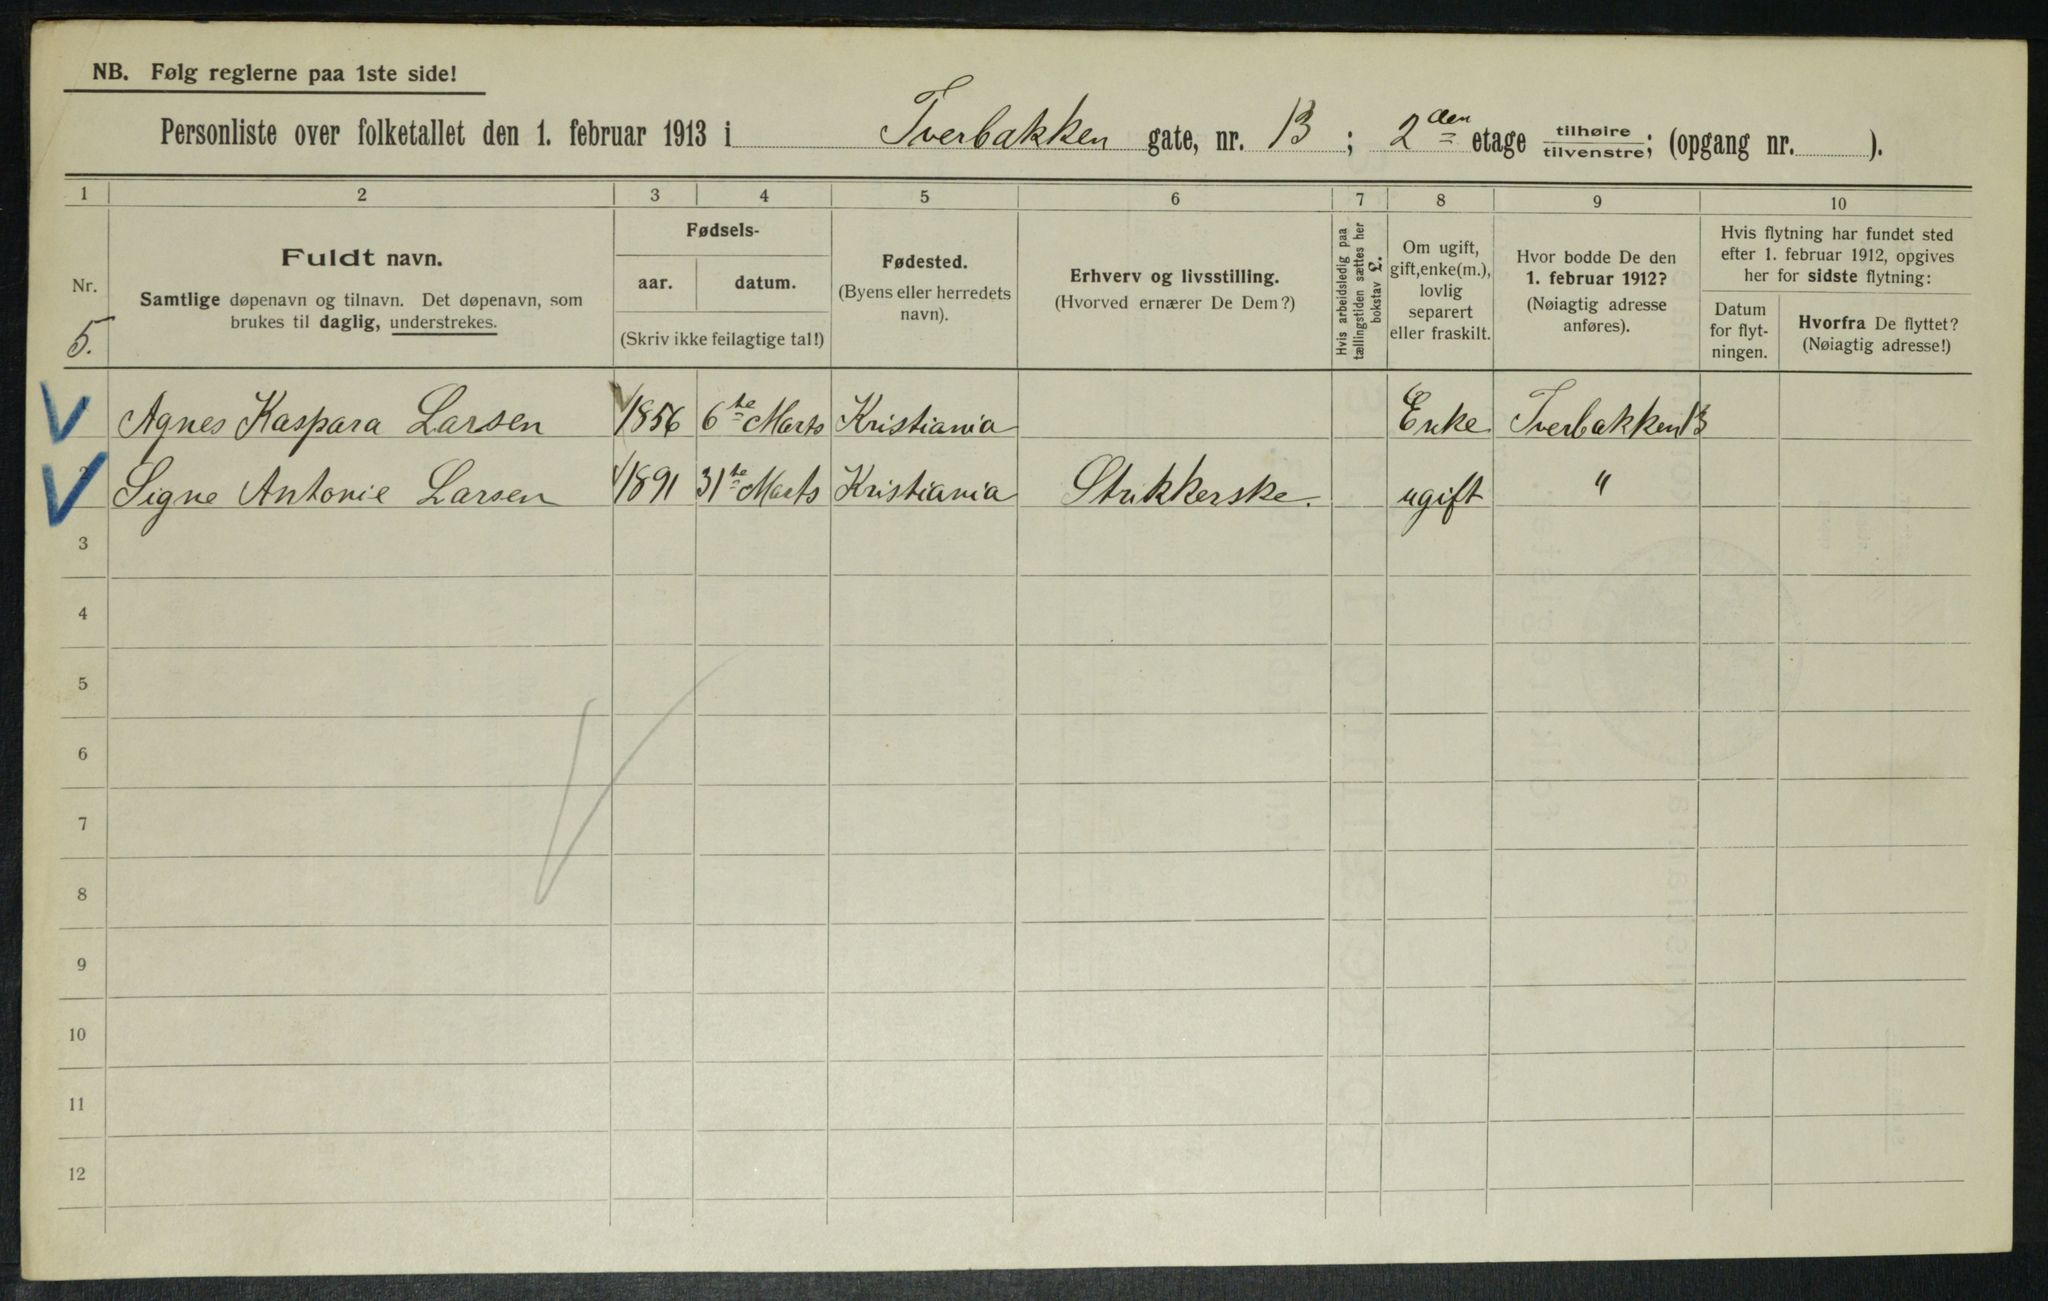 NB. Følg reglerne paa 1ste side!
Personliste over folketallet den 1. februar 1913 i Tverbakken gate, nr. 13; 2den etage tilhøire/tilvenstre; (opgang nr. ).
1 2 3 4 5 6 7 8 9 10
Nr.
5.
Fuldt navn.
Samtlige døpenavn og tilnavn. Det døpenavn, som
brukes til daglig, understrekes.
Fødsels-
aar. datum.
(Skriv ikke feilagtige tal!)
Fødested.
(Byens eller herredets
navn).
Erhverv og livsstilling.
(Hvorved ernærer De Dem?)
Hvis arbeidsledig paa
tællingstiden sættes her
bokstav L.
Om ugift,
gift, enke(m.),
lovlig
separert
eller fraskilt.
Hvor bodde De den
1. februar 1912?
(Nøiagtig adresse
anføres).
Hvis flytning har fundet sted
efter 1. februar 1912, opgives
her for sidste flytning:
Datum
for flyt-
ningen.
Hvorfra De flyttet?
(Nøiagtig adresse!)
Agnes Kaspara Larsen 1856 6te Marts Kristiania Enke Tverbakken 13
2 Signe Antonie Larsen 1891 31te Marts Kristiania Strikkerske. ugift "
3
4
5
6
7
8
9
10
11
12